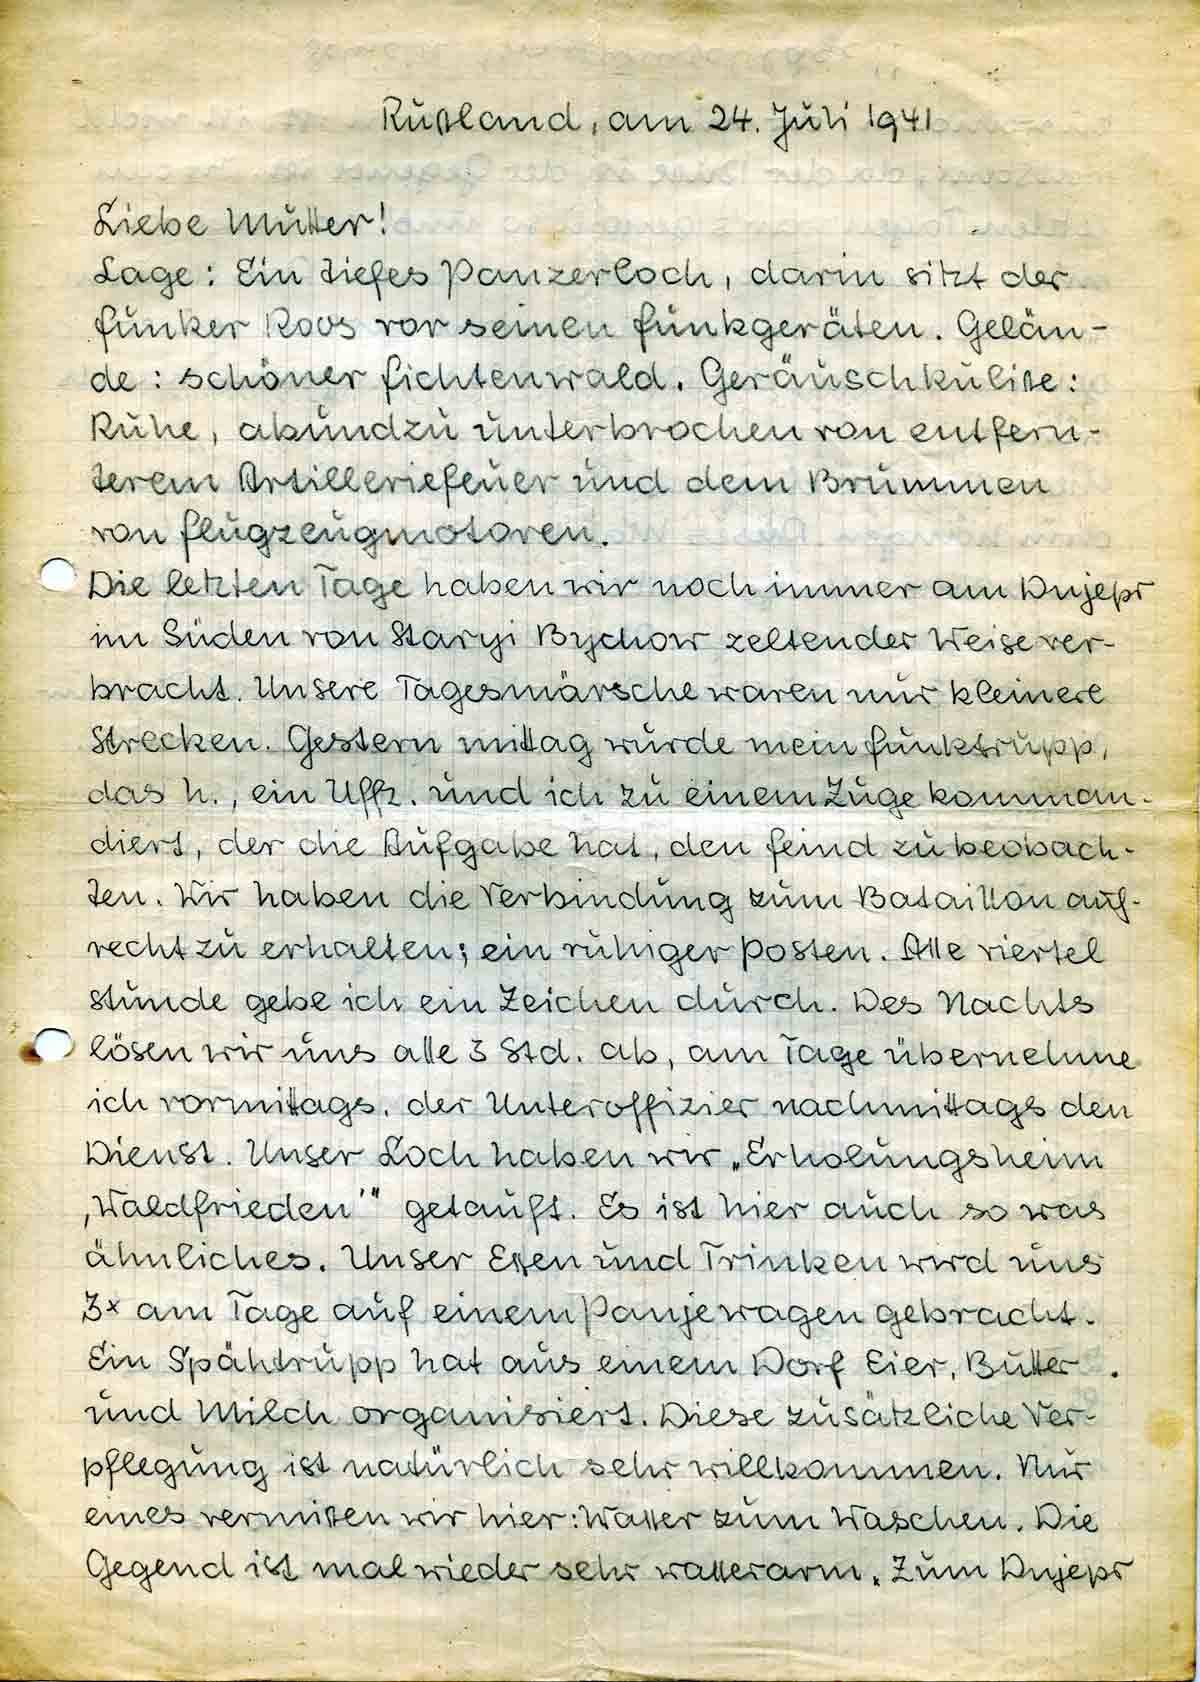 Rußland, am 24. Juli 1941
Liebe Mutter!
Lage: Ein tiefes Panzerloch, darin sitzt der
Funker Roos vor seinen Funkgeräten. Gelän-
de: schöner Fichtenwald. Geräuschkuliße:
Ruhe, abundzu unterbrochen von entfern-
terem Artilleriefeuer und dem Brummen
von Flugzeugmotoren.
Die letzten Tage haben wir noch immer am Dnjepr
im Süden von Staryi Bychow zeltender Weise ver-
bracht. Unsere Tagesmärsche waren nur kleinere
Strecken. Gestern mittag wurde mein Funktrupp,
das h., ein Uffz. und ich zu einem Zuge komman-
diert, der die Aufgabe hat, den Feind zu beobach-
ten. Wir haben die Verbindung zum Bataillon auf-
recht zu erhalten; ein ruhiger Posten. Alle viertel
stunde gebe ich ein Zeichen durch. Des Nachts
lösen wir uns alle 3 Std. ab, am Tage übernehme
ich vormittags, der Unteroffizier nachmittags den
Dienst. Unser Loch haben wir „Erholungsheim
‚Waldfrieden'" getauft. Es ist hier auch so was
ähnliches. Unser Eßen und Trinken wird uns
3x am Tage auf einem Panjewagen gebracht.
Ein Spähtrupp hat aus einem Dorf Eier, Butter
und Milch organisiert. Diese zusätzliche Ver-
pflegung ist natürlich sehr willkommen. Nur
eines vermißen wir hier: Waßer zum Waschen. Die
Gegend ist mal wieder sehr waßerarm. Zum Dnjepr